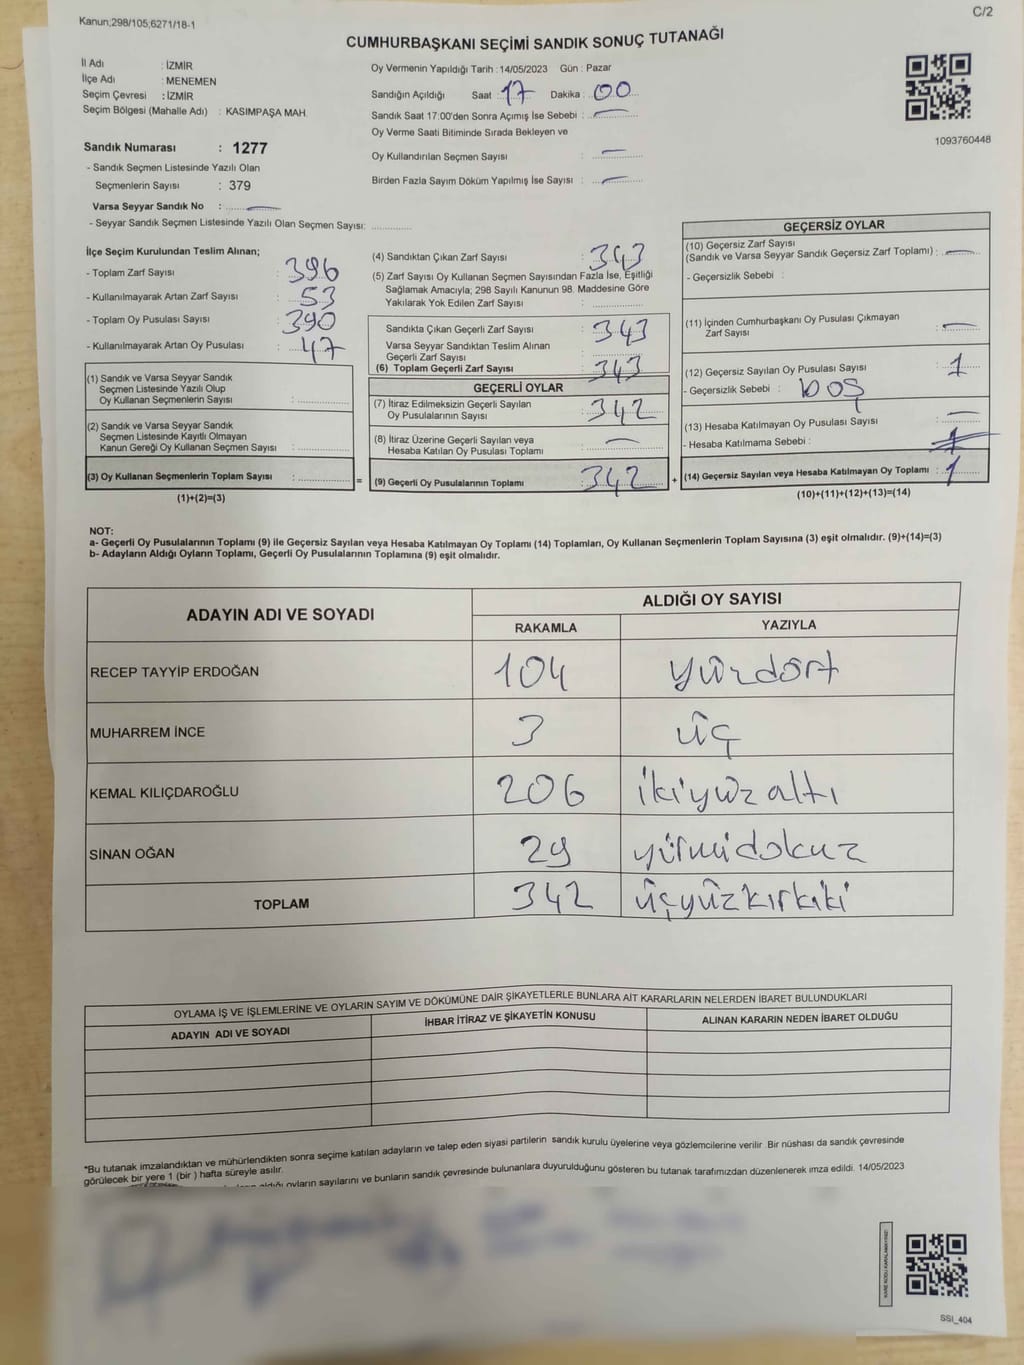 Kanun;298/105,6271/18-1
C/2
CUMHURBAŞKANI SEÇİMİ SANDIK SONUÇ TUTANAĞI
İl Adı : İZMİR
İlçe Adı : MENEMEN
Seçim Çevresi : İZMİR
Seçim Bölgesi (Mahalle Adı) : KASIMPAŞA MAH.
Oy Vermenin Yapıldığı Tarih : 14/05/2023 Gün : Pazar
Sandığın Açıldığı Saat : 17 Dakika : 00
Sandık Saat 17:00'den Sonra Açımış İse Sebebi : —
Oy Verme Saati Bitiminde Sırada Bekleyen ve
Oy Kullandırılan Seçmen Sayısı : —
Birden Fazla Sayım Döküm Yapılmış İse Sayısı : —
1093760448
Sandık Numarası : 1277
- Sandık Seçmen Listesinde Yazılı Olan
Seçmenlerin Sayısı : 379
Varsa Seyyar Sandık No : —
- Seyyar Sandık Seçmen Listesinde Yazılı Olan Seçmen Sayısı: ..............
İlçe Seçim Kurulundan Teslim Alınan;
- Toplam Zarf Sayısı : 396
- Kullanılmayarak Artan Zarf Sayısı : 53
- Toplam Oy Pusulası Sayısı : 390
- Kullanılmayarak Artan Oy Pusulası : 47
(1) Sandık ve Varsa Seyyar Sandık
Seçmen Listesinde Yazılı Olup
Oy Kullanan Seçmenlerin Sayısı :
(2) Sandık ve Varsa Seyyar Sandık
Seçmen Listesinde Kayıtlı Olmayan
Kanun Gereği Oy Kullanan Seçmen Sayısı :
(3) Oy Kullanan Seçmenlerin Toplam Sayısı :
(1)+(2)=(3)
=
(4) Sandıktan Çıkan Zarf Sayısı : 343
(5) Zarf Sayısı Oy Kullanan Seçmen Sayısından Fazla İse, Eşitliği
Sağlamak Amacıyla; 298 Sayılı Kanunun 98. Maddesine Göre
Yakılarak Yok Edilen Zarf Sayısı :
Sandıkta Çıkan Geçerli Zarf Sayısı : 343
Varsa Seyyar Sandıktan Teslim Alınan
Geçerli Zarf Sayısı :
(6) Toplam Geçerli Zarf Sayısı : 343
GEÇERLİ OYLAR
(7) İtiraz Edilmeksizin Geçerli Sayılan
Oy Pusulalarının Sayısı : 342
(8) İtiraz Üzerine Geçerli Sayılan veya
Hesaba Katılan Oy Pusulası Toplamı : —
(9) Geçerli Oy Pusulalarının Toplamı : 342
+
GEÇERSİZ OYLAR
(10) Geçersiz Zarf Sayısı
(Sandık ve Varsa Seyyar Sandık Geçersiz Zarf Toplamı) : —
- Geçersizlik Sebebi :
(11) İçinden Cumhurbaşkanı Oy Pusulası Çıkmayan
Zarf Sayısı : —
(12) Geçersiz Sayılan Oy Pusulası Sayısı : 1
- Geçersizlik Sebebi : boş
(13) Hesaba Katılmayan Oy Pusulası Sayısı : —
- Hesaba Katılmama Sebebi :
(14) Geçersiz Sayılan veya Hesaba Katılmayan Oy Toplamı : 1
(10)+(11)+(12)+(13)=(14)
NOT:
a- Geçerli Oy Pusulalarının Toplamı (9) ile Geçersiz Sayılan veya Hesaba Katılmayan Oy Toplamı (14) Toplamları, Oy Kullanan Seçmenlerin Toplam Sayısına (3) eşit olmalıdır. (9)+(14)=(3)
b- Adayların Aldığı Oyların Toplamı, Geçerli Oy Pusulalarının Toplamına (9) eşit olmalıdır.
ADAYIN ADI VE SOYADI
ALDIĞI OY SAYISI
RAKAMLA YAZIYLA
RECEP TAYYİP ERDOĞAN 104 yüzdört
MUHARREM İNCE 3 üç
KEMAL KILIÇDAROĞLU 206 ikiyüzaltı
SİNAN OĞAN 29 yirmidokuz
TOPLAM 342 üçyüzkırkiki
OYLAMA İŞ VE İŞLEMLERİNE VE OYLARIN SAYIM VE DÖKÜMÜNE DAİR ŞİKAYETLERLE BUNLARA AİT KARARLARIN NELERDEN İBARET BULUNDUKLARI
ADAYIN ADI VE SOYADI İHBAR İTİRAZ VE ŞİKAYETİN KONUSU ALINAN KARARIN NEDEN İBARET OLDUĞU
*Bu tutanak imzalandıktan ve mühürlendikten sonra seçime katılan adayların ve talep eden siyasi partilerin sandık kurulu üyelerine veya gözlemcilerine verilir. Bir nüshası da sandık çevresinde
görülecek bir yere 1 (bir ) hafta süreyle asılır.
aldığı oyların sayılarını ve bunların sandık çevresinde bulunanlara duyurulduğunu gösteren bu tutanak tarafımızdan düzenlenerek imza edildi. 14/05/2023
KARE KODU KAPALAMAYINIZ!
SSI_404